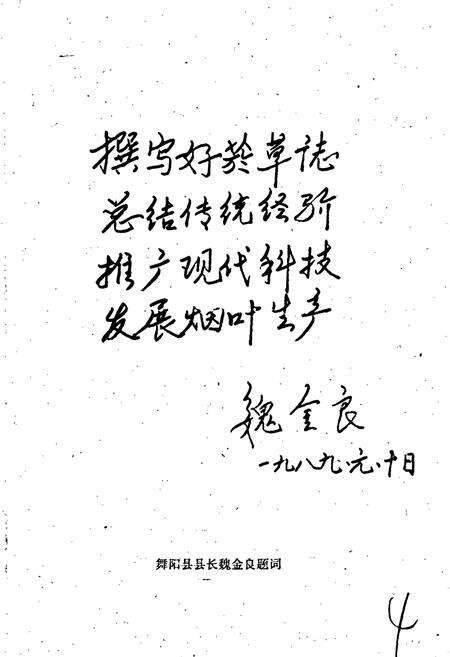 撰写好菸草誌
总结传统经验
推广现代科技
发展烟叶生产
魏金良
一九八九·元·十日
舞阳县县长魏金良题词
4